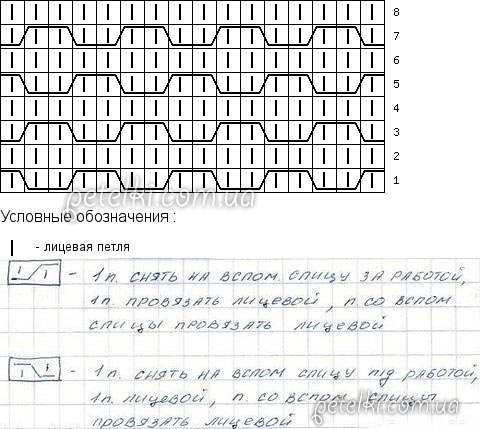 8
7
6
5
4
3
2
1
petelki.com.ua
Условные обозначения :
- лицевая петля
- 1п. снять на вспом. спицу за работой,
1п. провязать лицевой, п. со вспом
спицы провязать лицевой
- 1п. снять на вспом спицу під работой,
1п. лицевой, п. со вспом спицы
провязать лицевой
petelki.com.ua